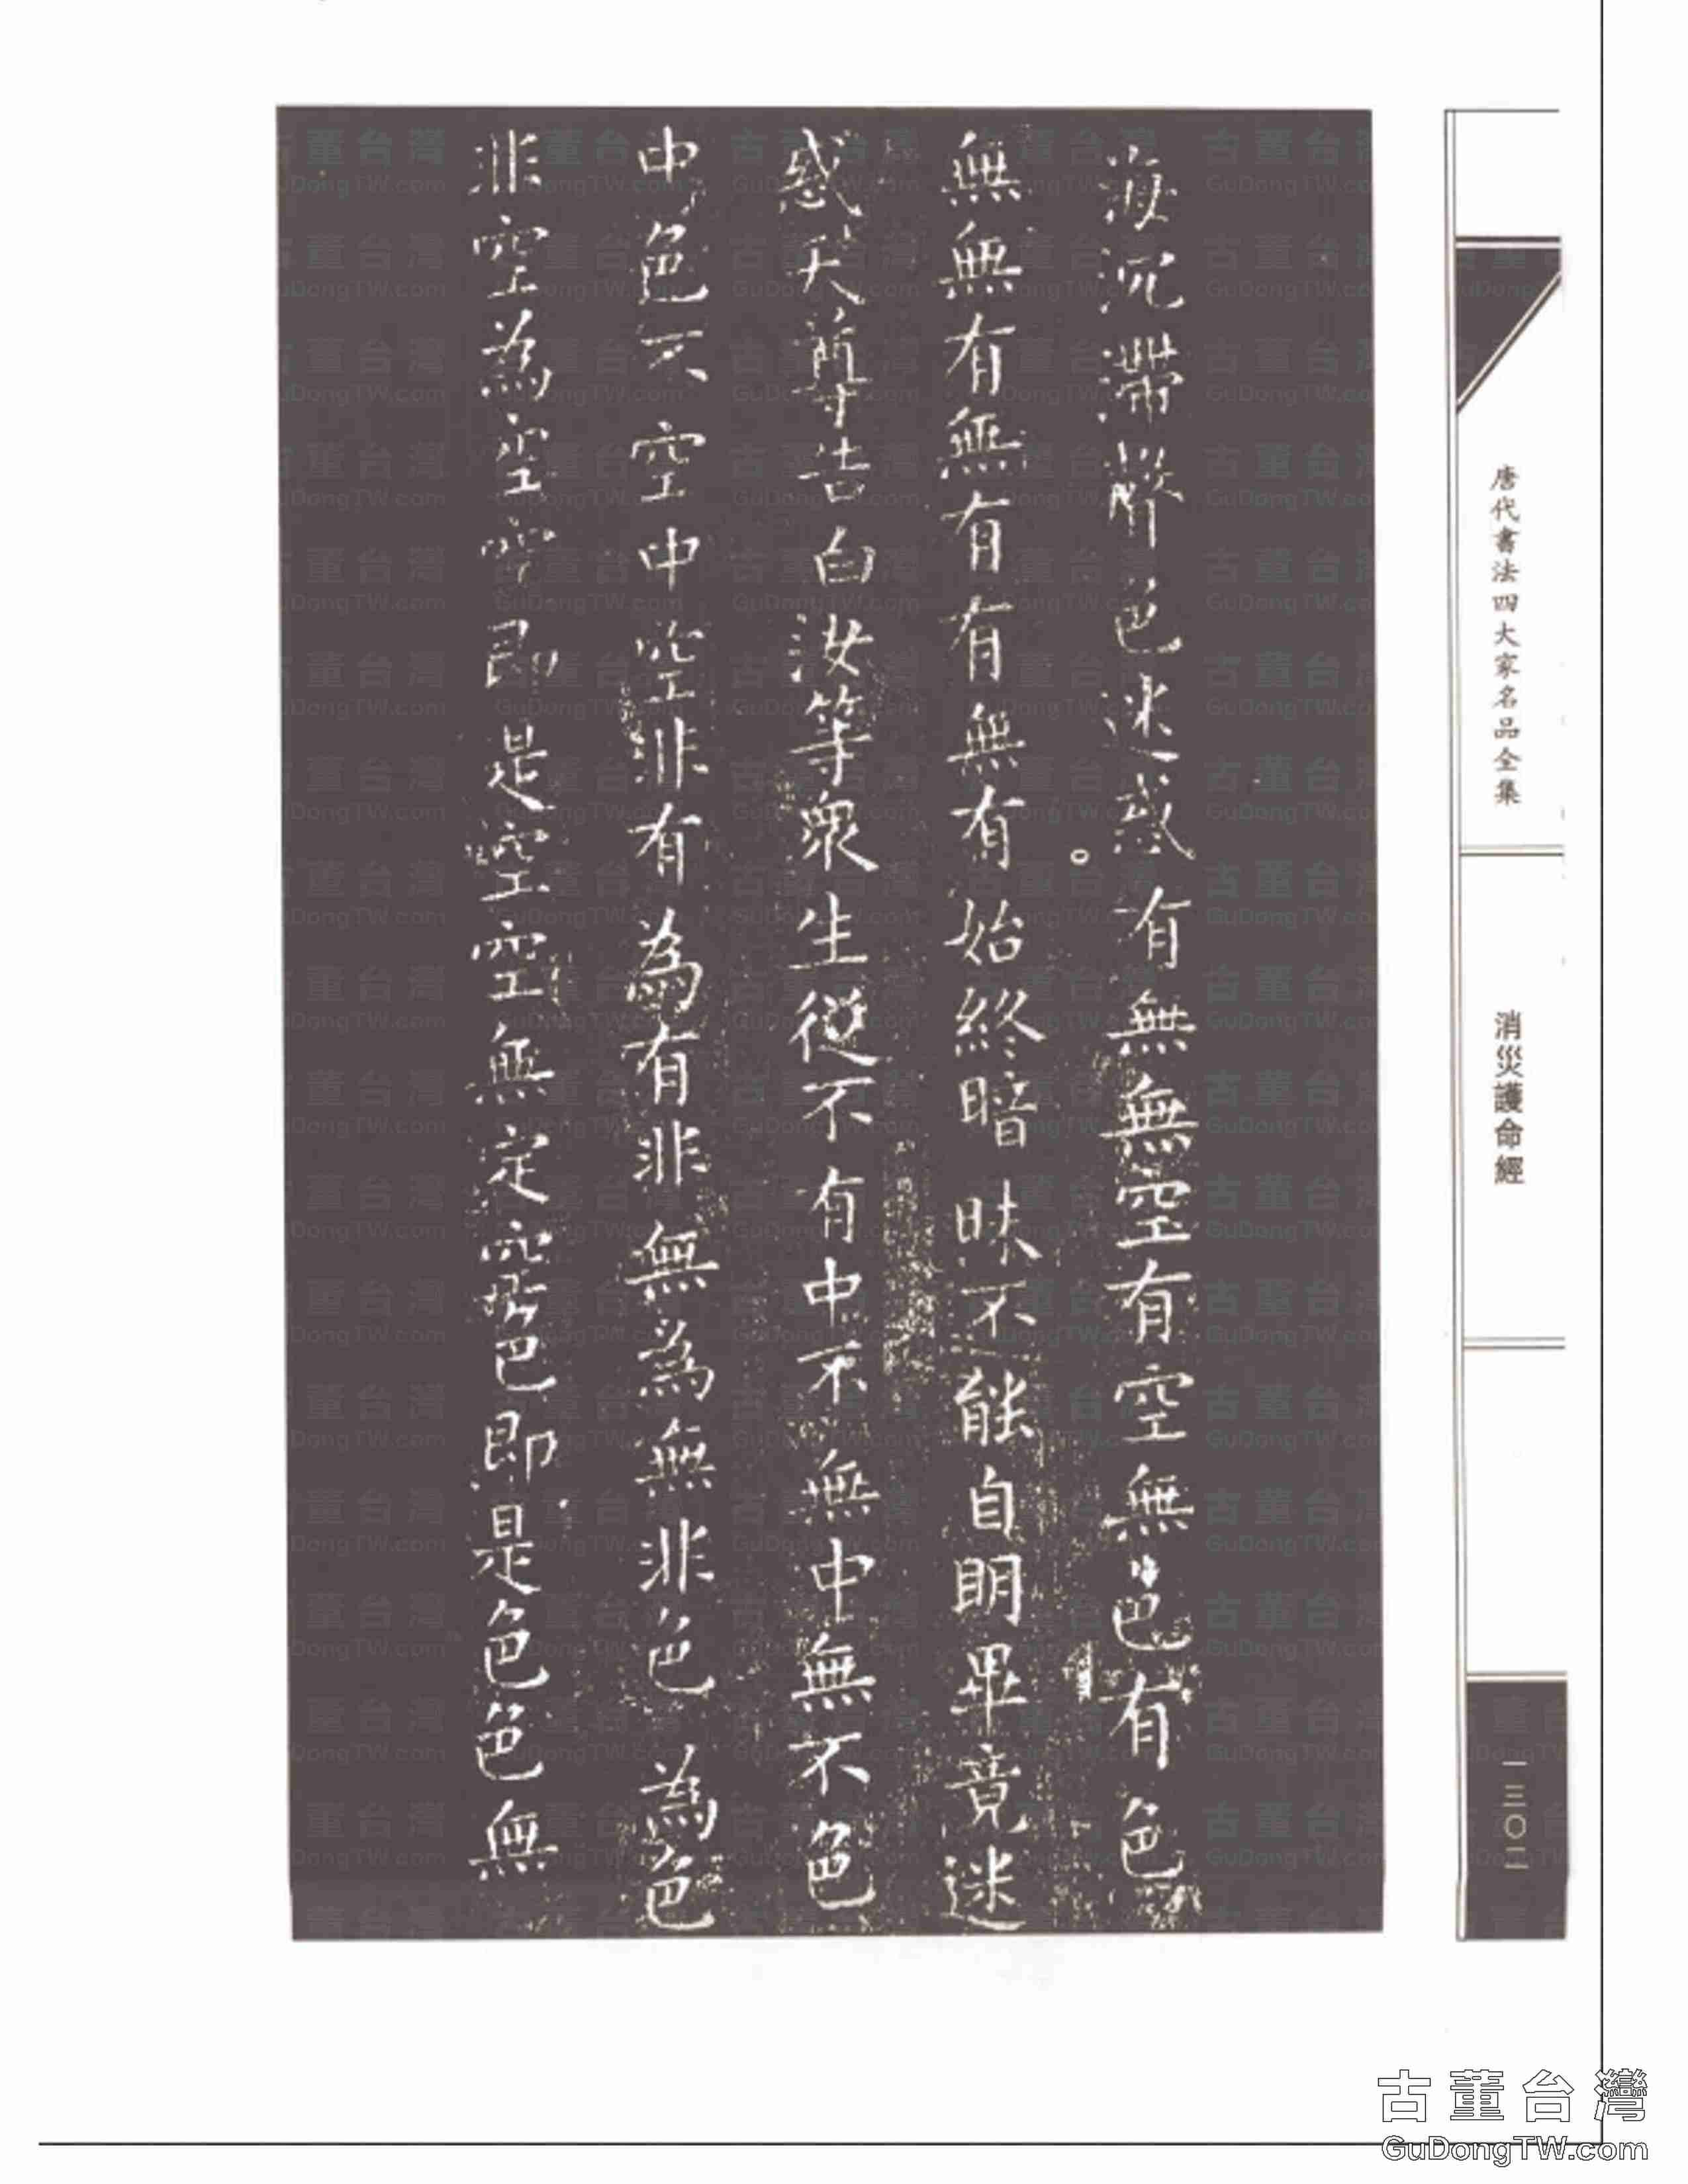 海沉滯聲色迷惑有無無空有空無色有色
無無有無有有無有始終暗昧不能自明畢竟迷
惑天尊告白汝等眾生從不有中不無中無不色
中色不空中空非有為有非無為無非色為色
非空為空空即是空空無定空色即是色色無
唐代書法四大家名品全集
消災護命經
一三〇二
古董台灣
GuDongTW.com